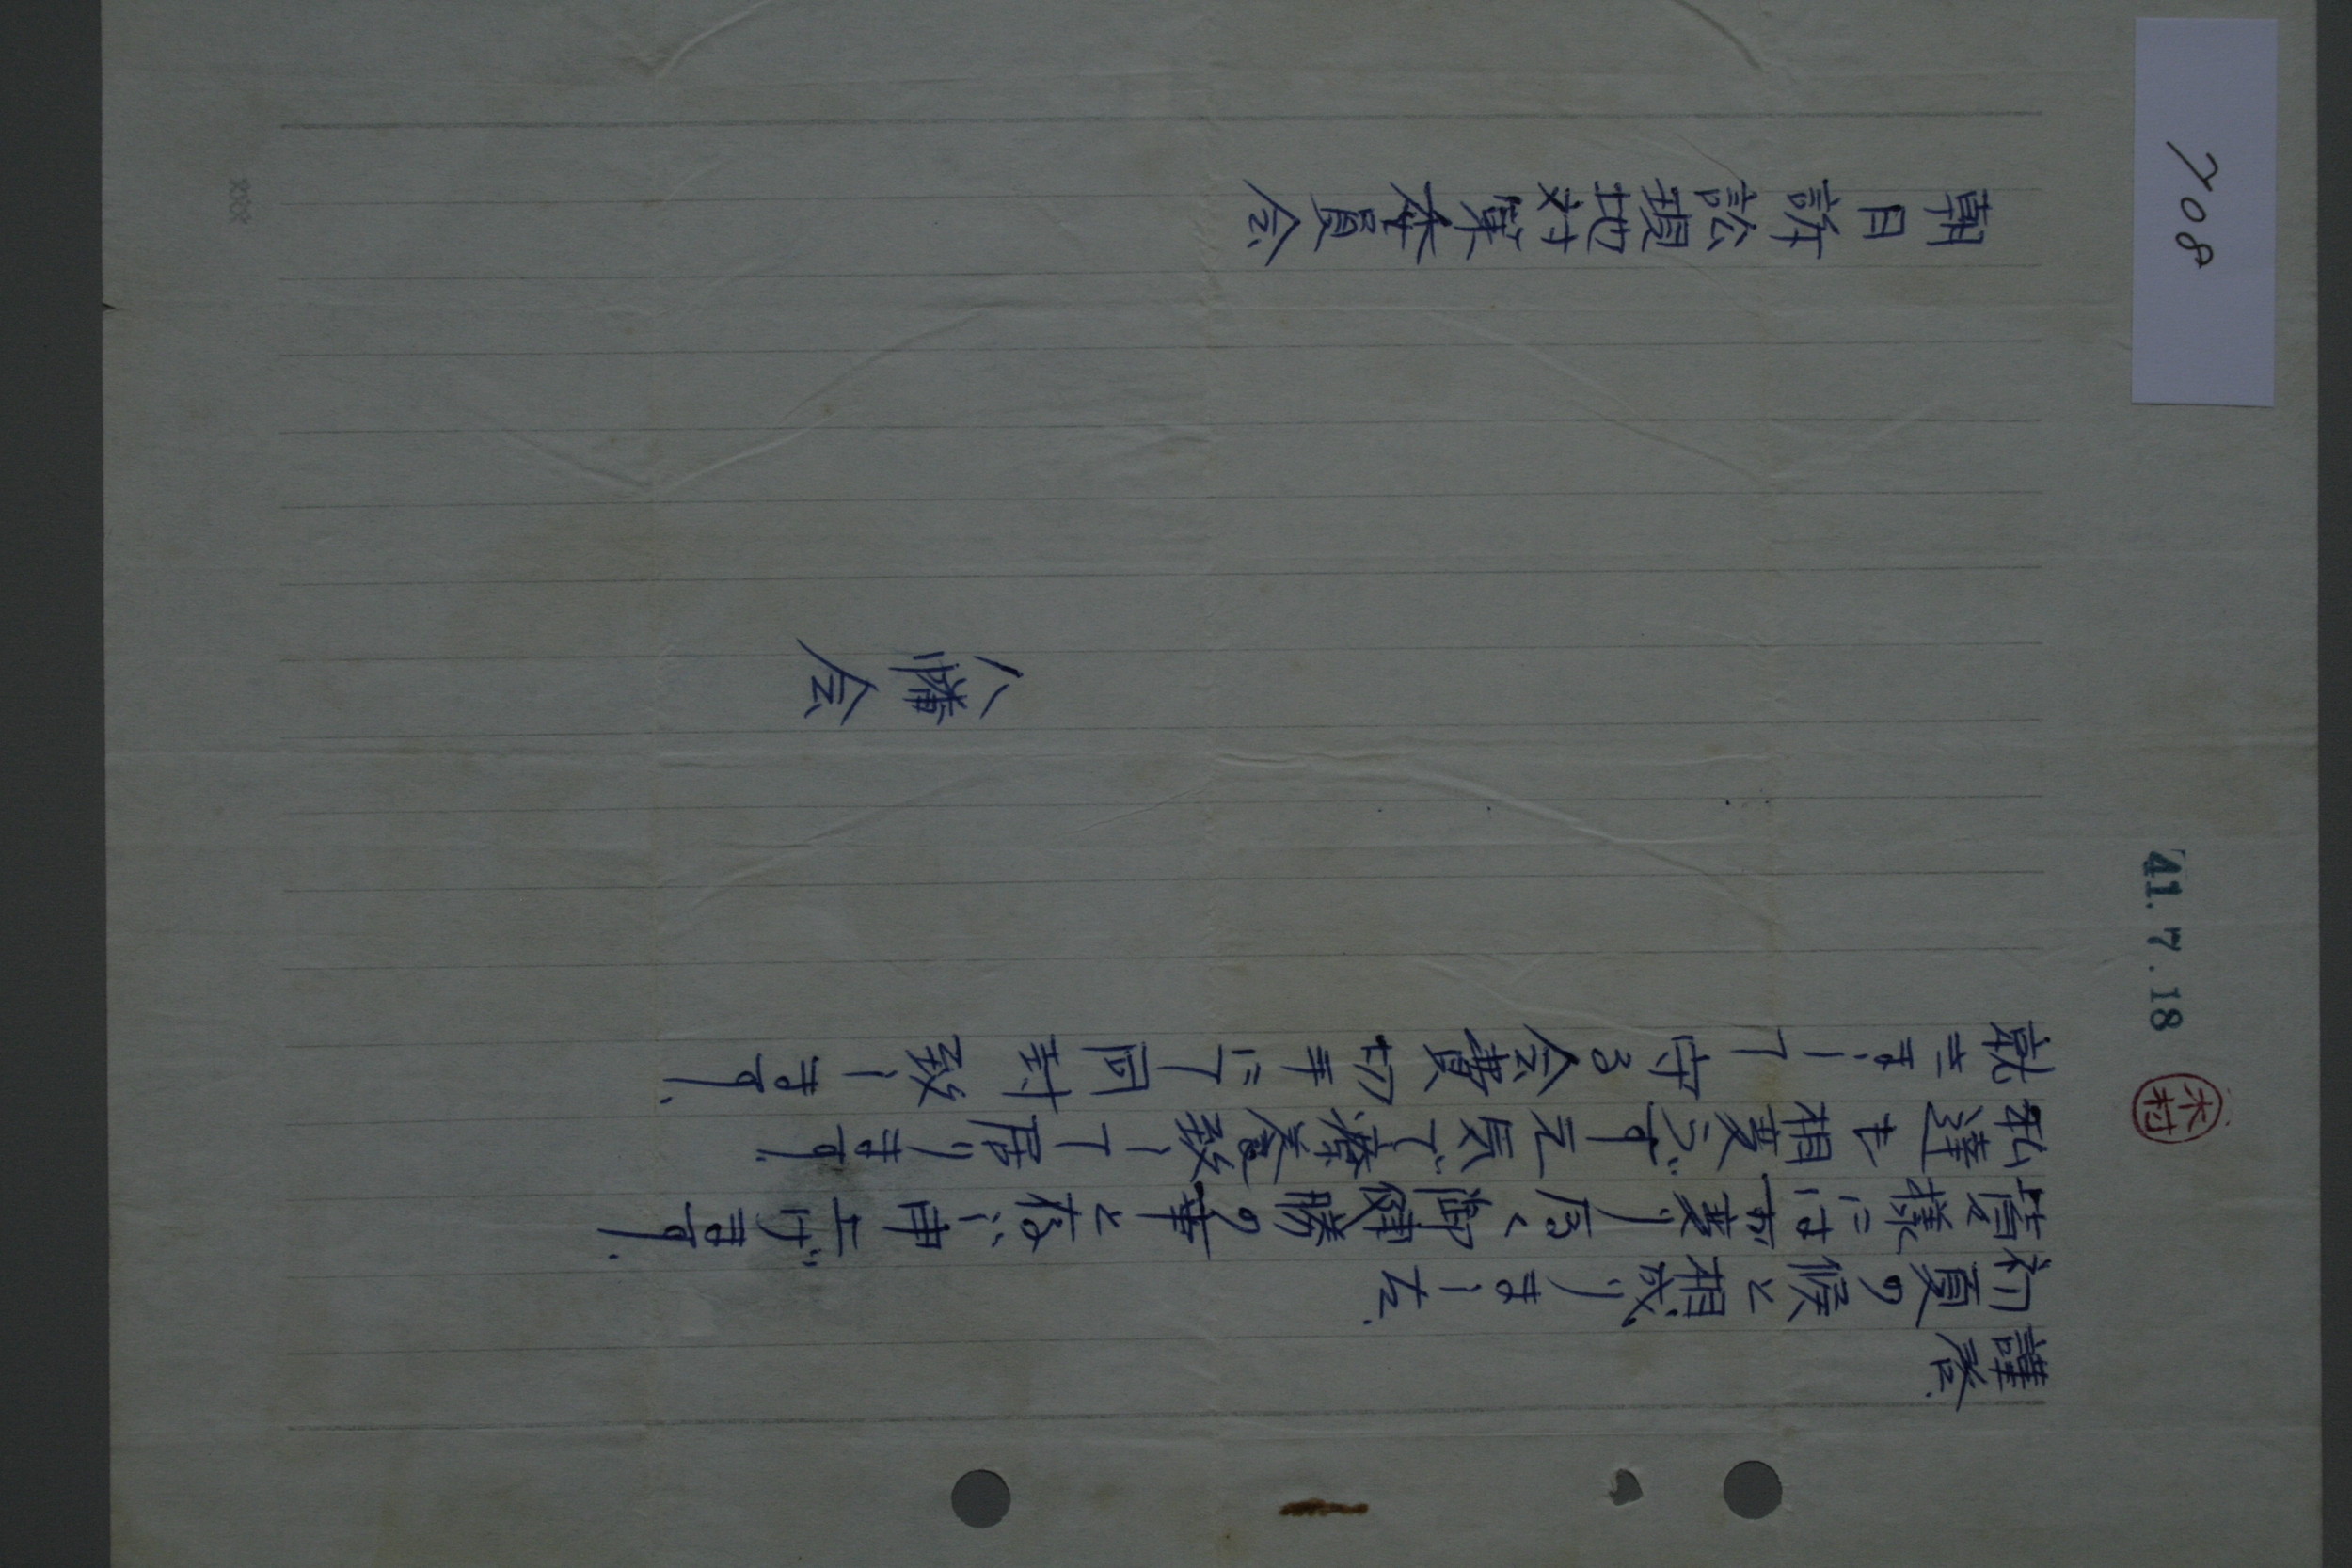 708
41.7.18
木村
謹啓、
初夏の候と相成りました。
皆様にはお変りく御健勝の事と存じ申上げます。
私達も相変らず元気で療養致して居ります。
就きまして守る会費切手にて同封致します。
八幡会
朝日訴訟現地対策委員会